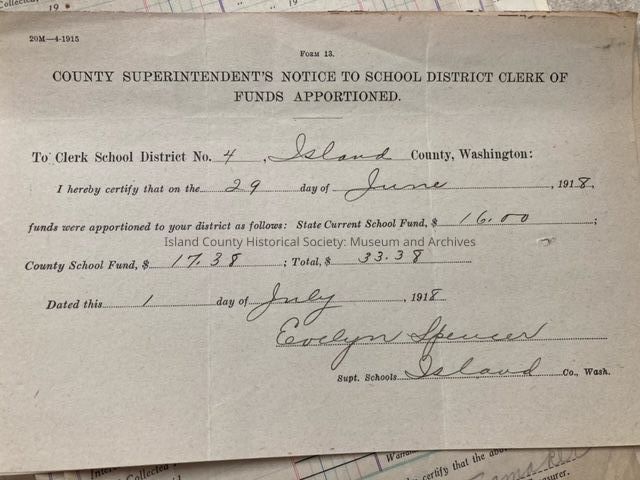 Collected,
19
19
20M—4-1915
Form 13.
COUNTY SUPERINTENDENT'S NOTICE TO SCHOOL DISTRICT CLERK OF
FUNDS APPORTIONED.
To Clerk School District No. 4, Island County, Washington:
I hereby certify that on the 29 day of June, 1918,
funds were apportioned to your district as follows: State Current School Fund, $ 16.00;
Island County Historical Society: Museum and Archives
County School Fund, $ 17.38; Total, $ 33.38
Dated this 1 day of July, 1918
Evelyn Spencer
Supt. Schools Island Co., Wash.
certify that the above
Collected